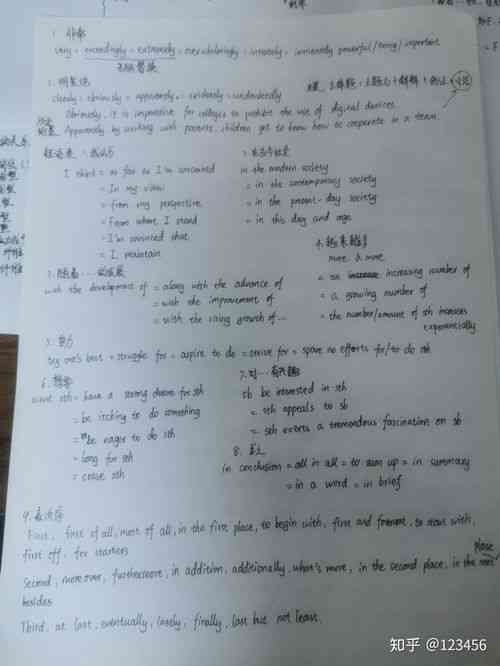 1. 非常
very = exceedingly = extremely = overwhelmingly = intensely = immensely powerful/tiring/important
无脑替换
2. 明显地
clearly = obviously = apparently = evidently = undoubtedly
Obviously, it is imperative for colleges to prohibit the use of digital devices.
Apparently by working with parents, children get to know how to cooperate in a team.
1. 我认为
I think = as far as I'm concerned
= In my view
= from my perspective
= from where I stand
= I'm convinced that
= I maintain
2. 在当今社会
in the modern society
= in the contemporary society
= in the present-day society
= in this day and age
3. 随着...的发展
with the development of = along with the advance of
= with the improvement of
= with the rising growth of...
4. 越来越多
more & more
= an increasing number of
= a growing number of
= the number/amount of sth increases
exponentially
5. 努力
try one's best = struggle for = aspire to do = strive for = spare no efforts for/to do sth
6. 想要
want sth = have a strong desire for sth
= be itching to do something
= be eager to do sth
= long for sth
= crave sth
7. 对...有兴趣
sb be interested in sth
= sth appeals to sb
= sth exerts a tremondous fascination on sb
8. 总之
in conclusion = all in all = to sum up = in summary
= in a word = in brief
9. 表次序
First, first of all, most of all, in the first place, to begin with, first and foremost, to start with,
first off, for starters
Second, moreover, furthermore, in addition, additionally, what's more, in the second place, in the next place
besides
Third, at last, eventually, lastly, finally, last but not least.
知乎 @123456